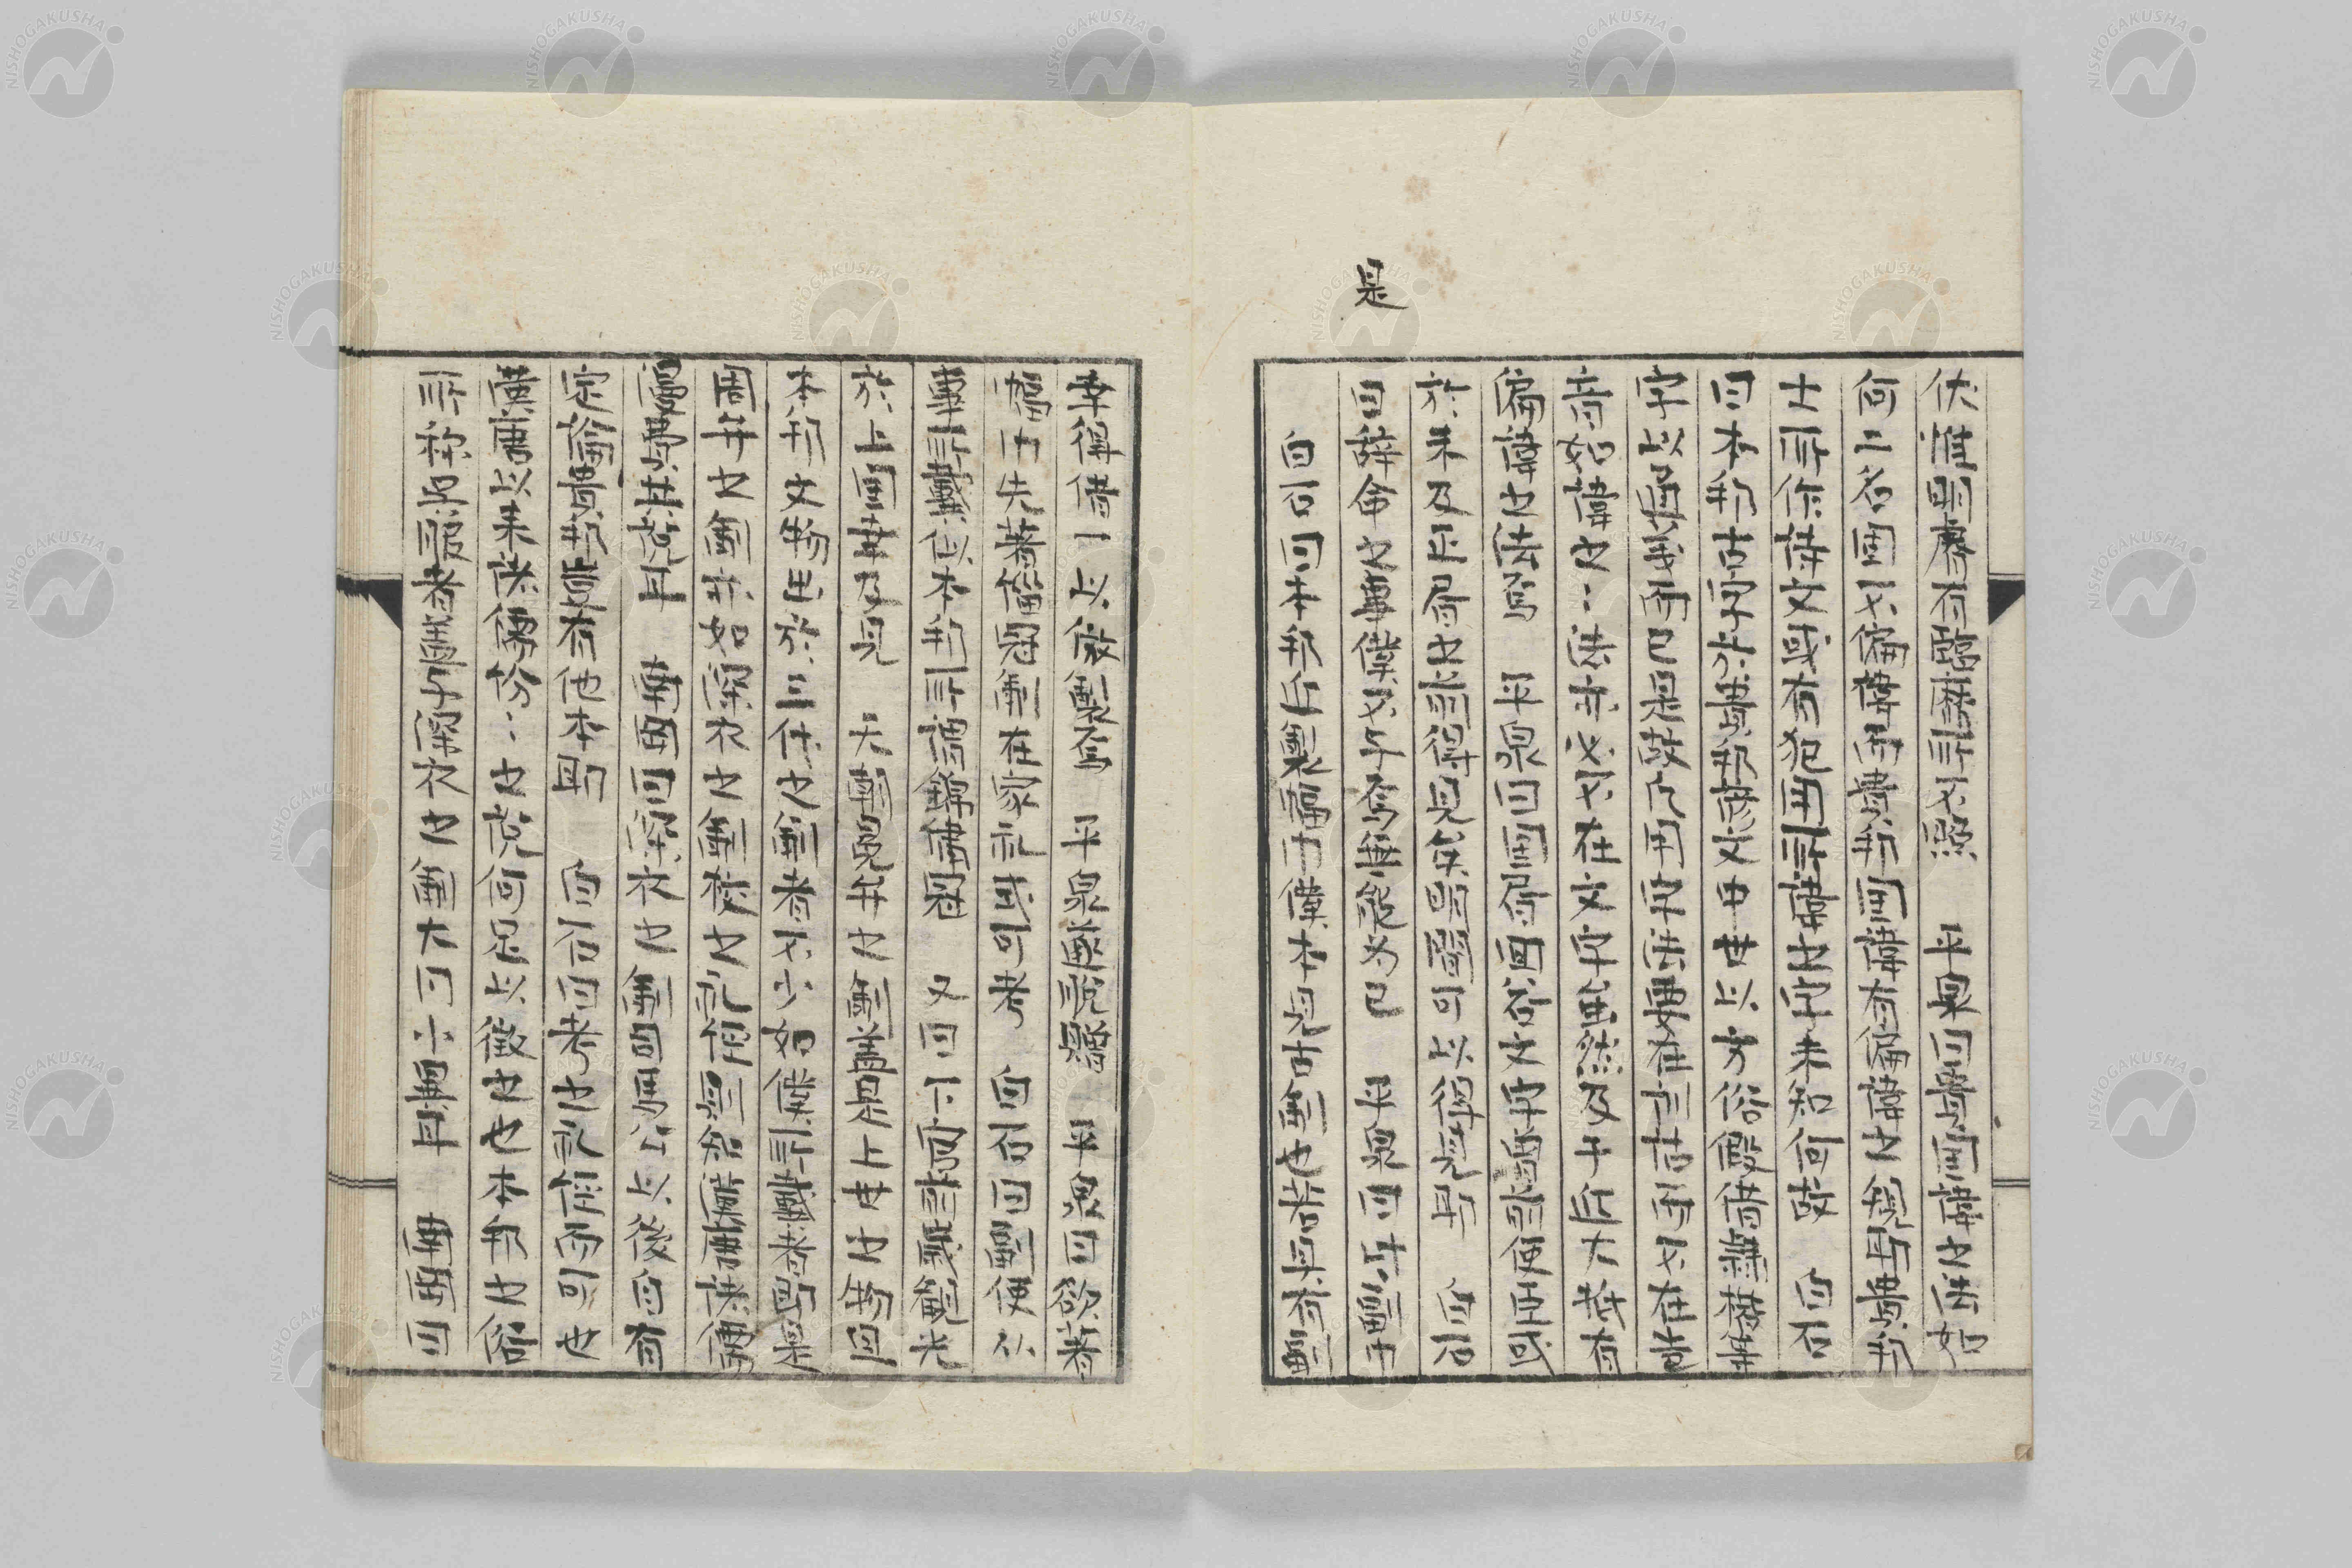 是
伏惟明鑒有臨 所不照　平泉曰貴國諱之法如
何二名固不偏諱而貴邦國諱有偏諱之規耶貴邦
士所作詩文或有犯用所諱之字未知何故　白石
曰本邦古字 貴邦諺文中世以方俗假借 漢
字以 已是故凡用字法要在訓詁而不在音
音如諱之〻法亦必不在文字雖然及于近大抵有
偏諱之法焉　平泉曰國 回答文字 便臣或
於未及 之前得見矣明間可以得覽耶　白石
曰辭命之事僕不与焉無能為已　平泉曰 巾
白石曰本邦近製福巾僕本見古制也若果有副
幸得借一以倣製焉　平泉 脱贈　平泉曰欲著
福巾先著緇冠制在家礼或可考　白石曰 便公
輩所戴似本邦所謂錦 冠　又曰下官 觀光
於上國幸及見　天朝冕弁之制蓋是上世之物因
本邦文物出於三代之制者不少如僕所戴者即是
周弁之制亦如深衣之制校之礼経則知漢唐諸儒
漫費其說耳　南岡曰深衣之制司馬公以後自有
定論貴邦豈有他本耶　白石曰考之礼経而可也
漢唐以来諸儒紛〻之說何足以徵之也本邦之俗
所称呉服者蓋与深衣之制大同小異耳　南岡曰